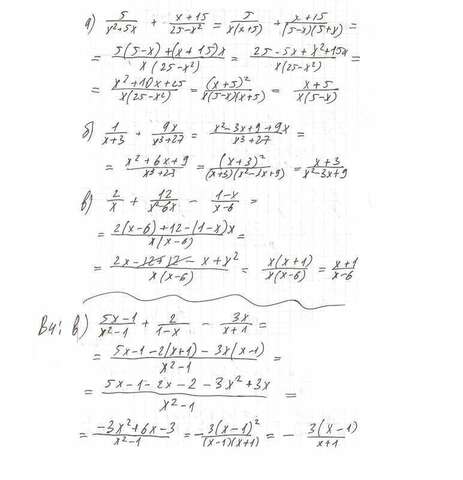 а) 5/(x²+5x) + (x+15)/(25-x²) = 5/(x(x+5)) + (x+15)/((5-x)(5+x)) =
= (5(5-x)+(x+15)x)/(x(25-x²)) = (25-5x+x²+15x)/(x(25-x²)) =
= (x²+10x+25)/(x(25-x²)) = (x+5)²/(x(5-x)(x+5)) = (x+5)/(x(5-x))
б) 1/(x+3) + 9x/(x³+27) = (x²-3x+9+9x)/(x³+27) =
= (x²+6x+9)/(x³+27) = (x+3)²/((x+3)(x²-3x+9)) = (x+3)/(x²-3x+9)
в) 2/x + 12/(x²-6x) - (1-x)/(x-6) =
= (2(x-6)+12-(1-x)x)/(x(x-6)) =
= (2x-12+12-x+x²)/(x(x-6)) = x(x+1)/(x(x-6)) = (x+1)/(x-6)
В4: в) (5x-1)/(x²-1) + 2/(1-x) - 3x/(x+1) =
= (5x-1-2(x+1)-3x(x-1))/(x²-1) =
= (5x-1-2x-2-3x²+3x)/(x²-1) =
= (-3x²+6x-3)/(x²-1) = -3(x-1)²/((x-1)(x+1)) = - 3(x-1)/(x+1)